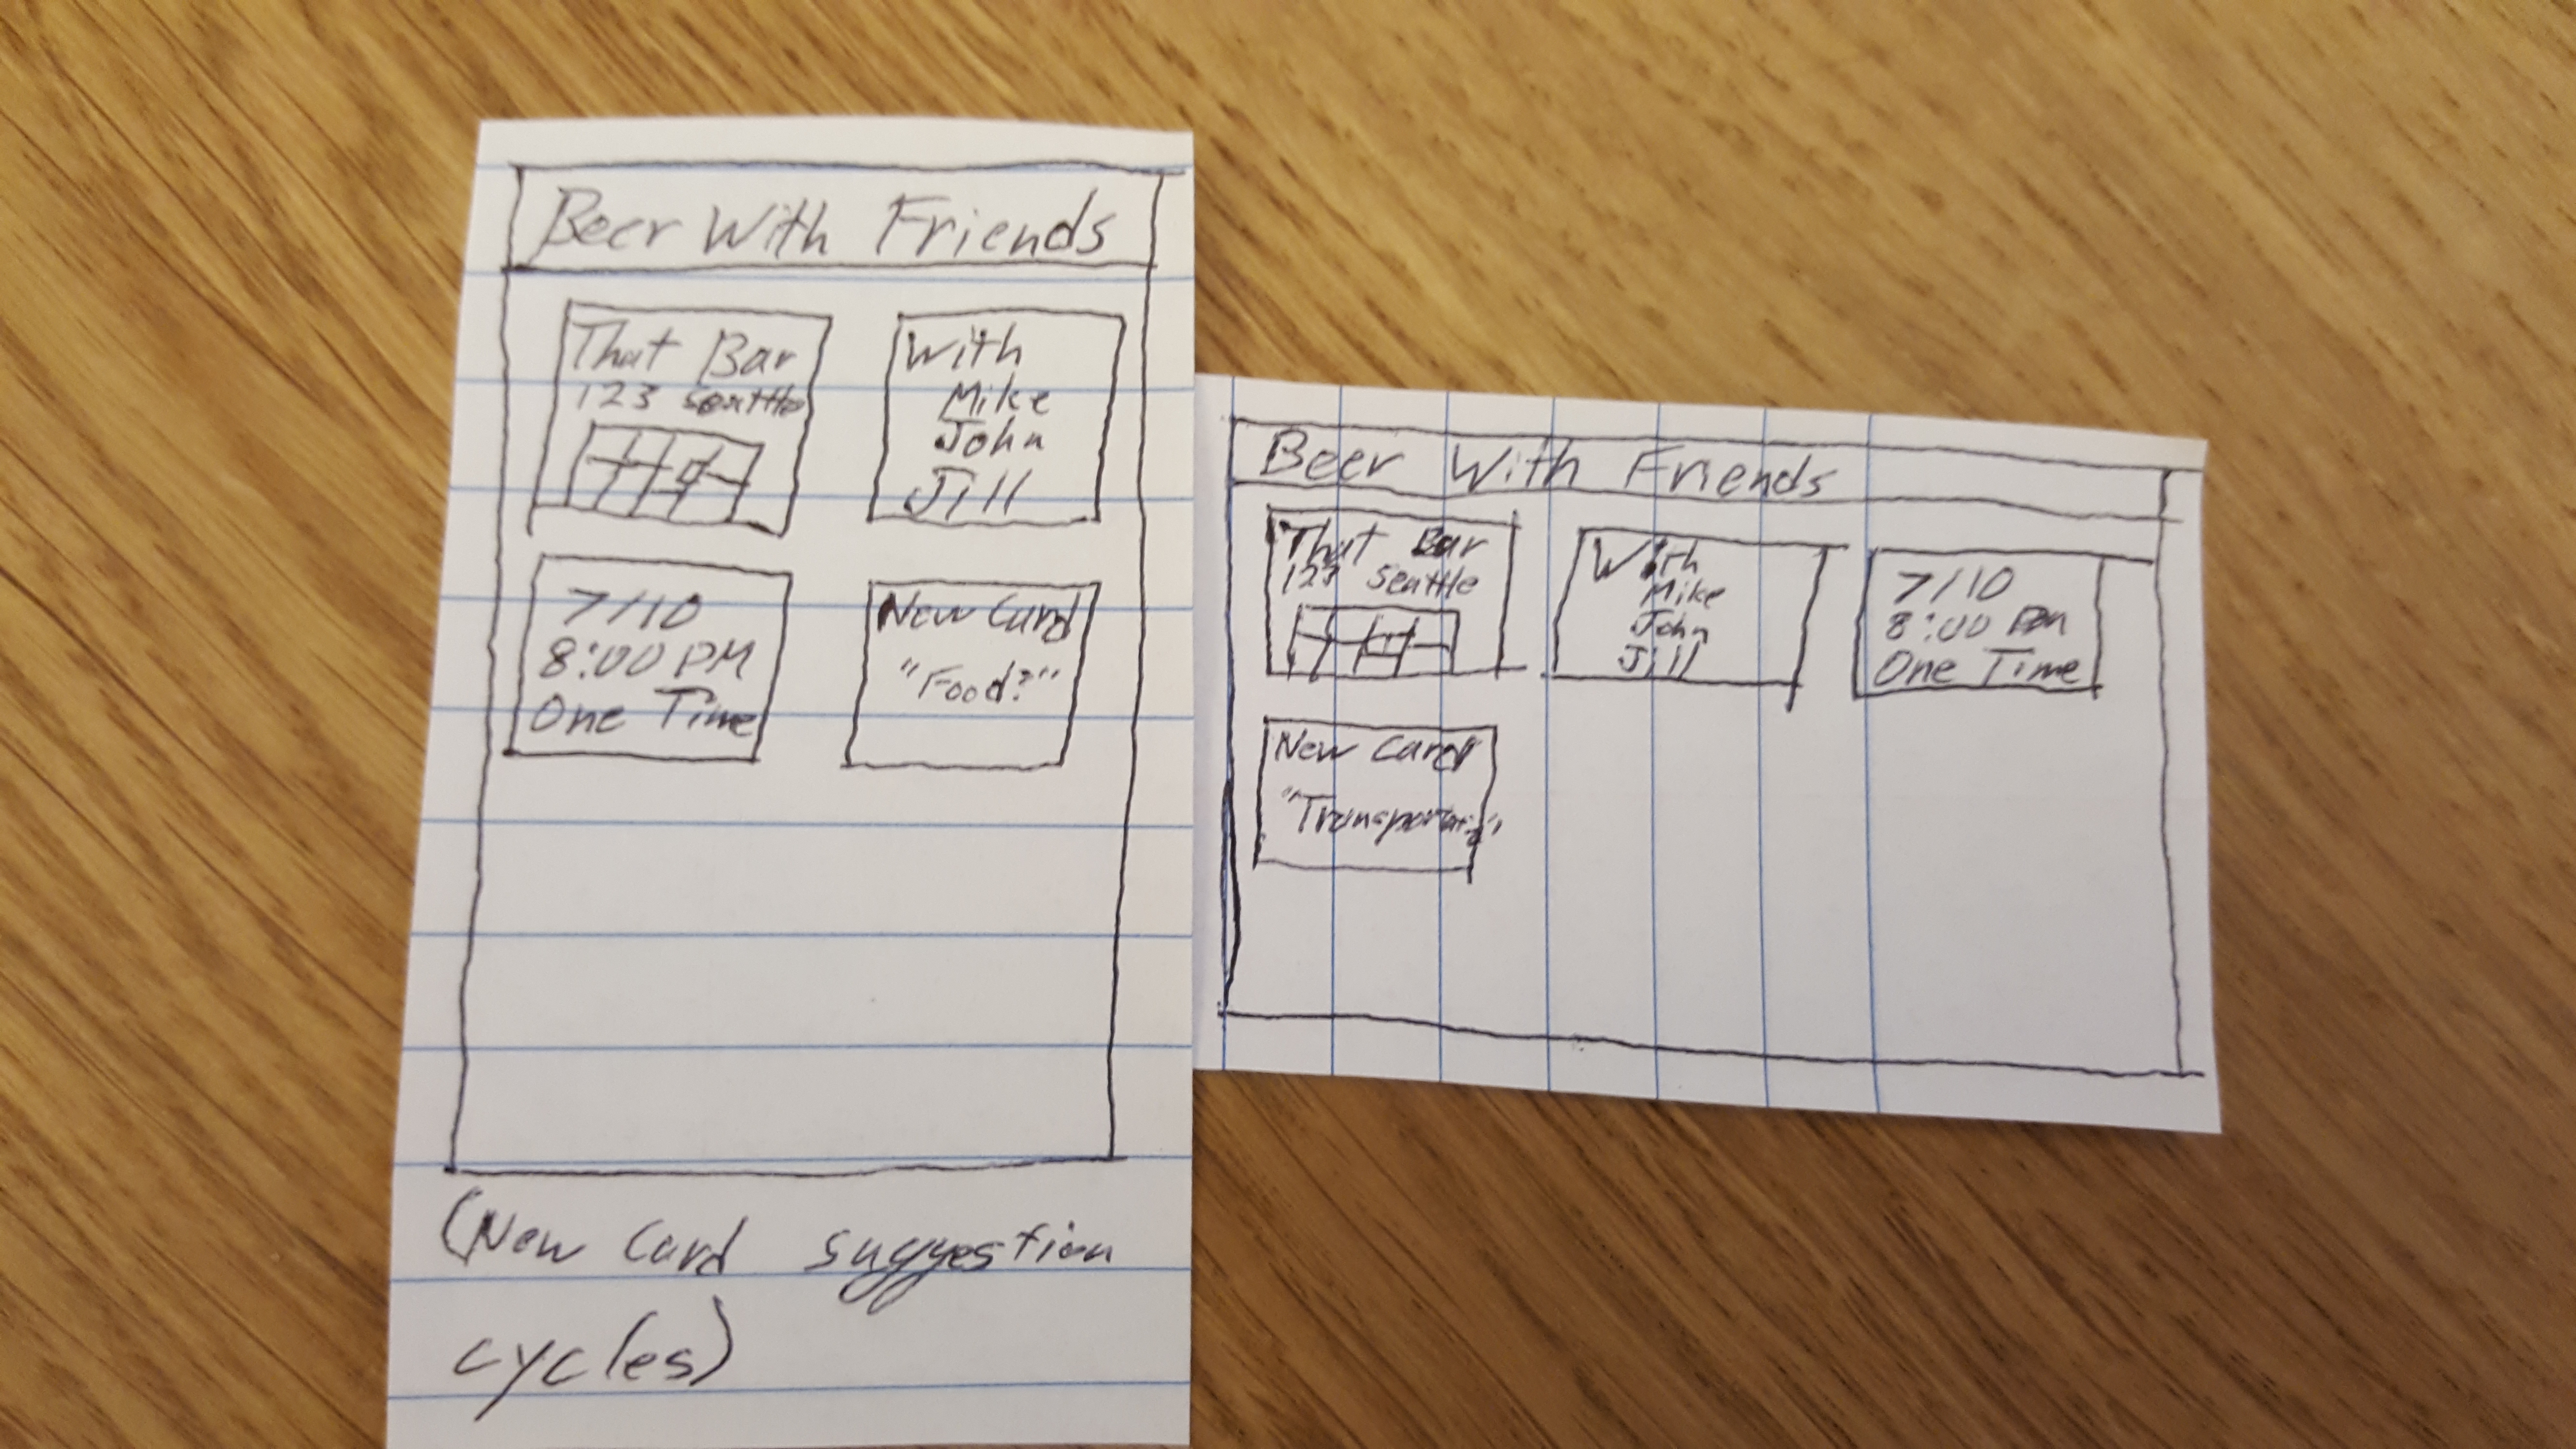 Beer With Friends
That Bar
123 Seattle
With
Mike
John
Jill
7/10
8:00 PM
One Time
New Card
"Food?"
(New Card suggestion
cycles)
Beer With Friends
That Bar
123 Seattle
With
Mike
John
Jill
7/10
8:00 PM
One Time
New Card